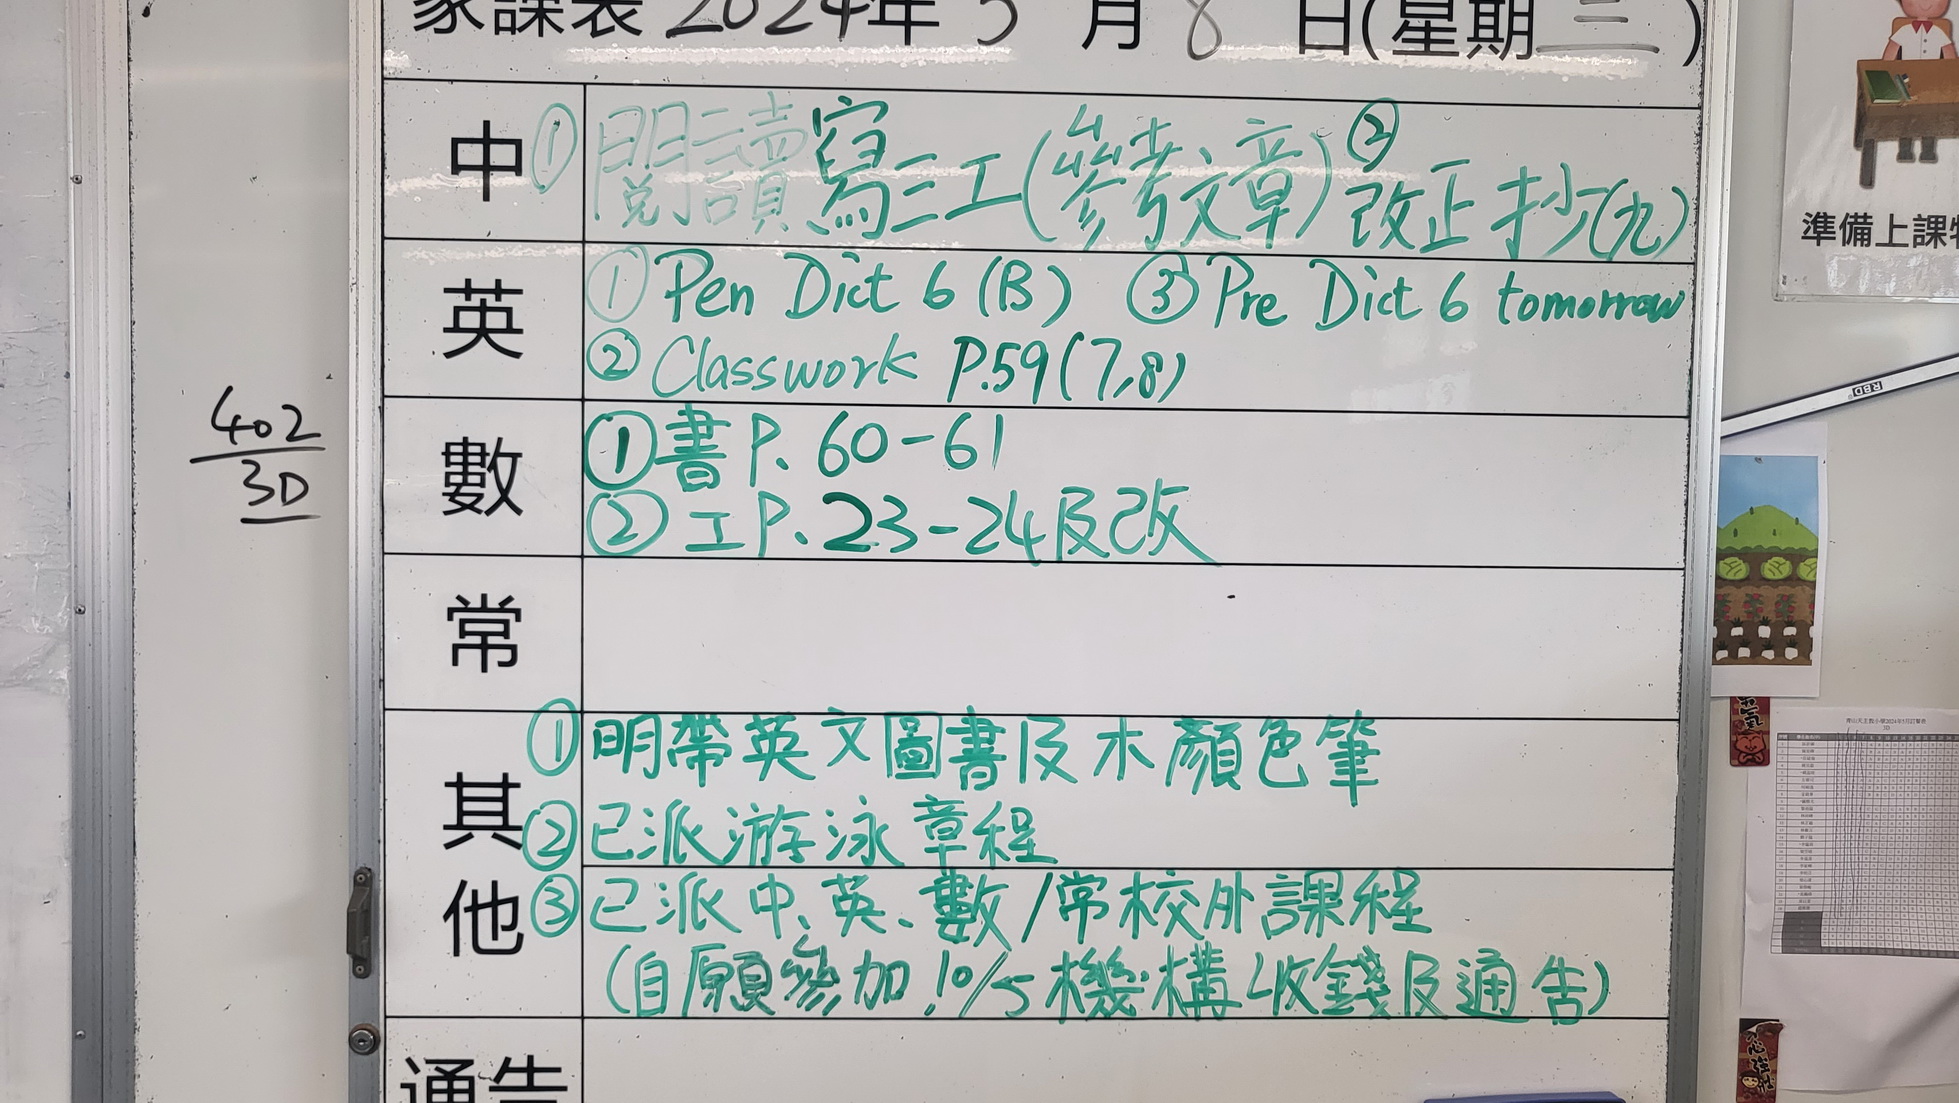 家課表 2024年 5 月 8 日(星期 三 )
中 ① 閱讀寫三工(參考文章) ② 改正 抄(九)
英 ① Pen Dict 6 (B) ③ Pre Dict 6 tomorrow
② Classwork P.59(7,8)
數 ① 書 P. 60-61
② 工 P. 23-24及改
常
其他 ① 明帶英文圖書及木顏色筆
② 已派游泳章程
③ 已派中、英、數/常校外課程
(自願參加,10/5機構收錢及通告)
通告
402
3D
準備上課物
RBD